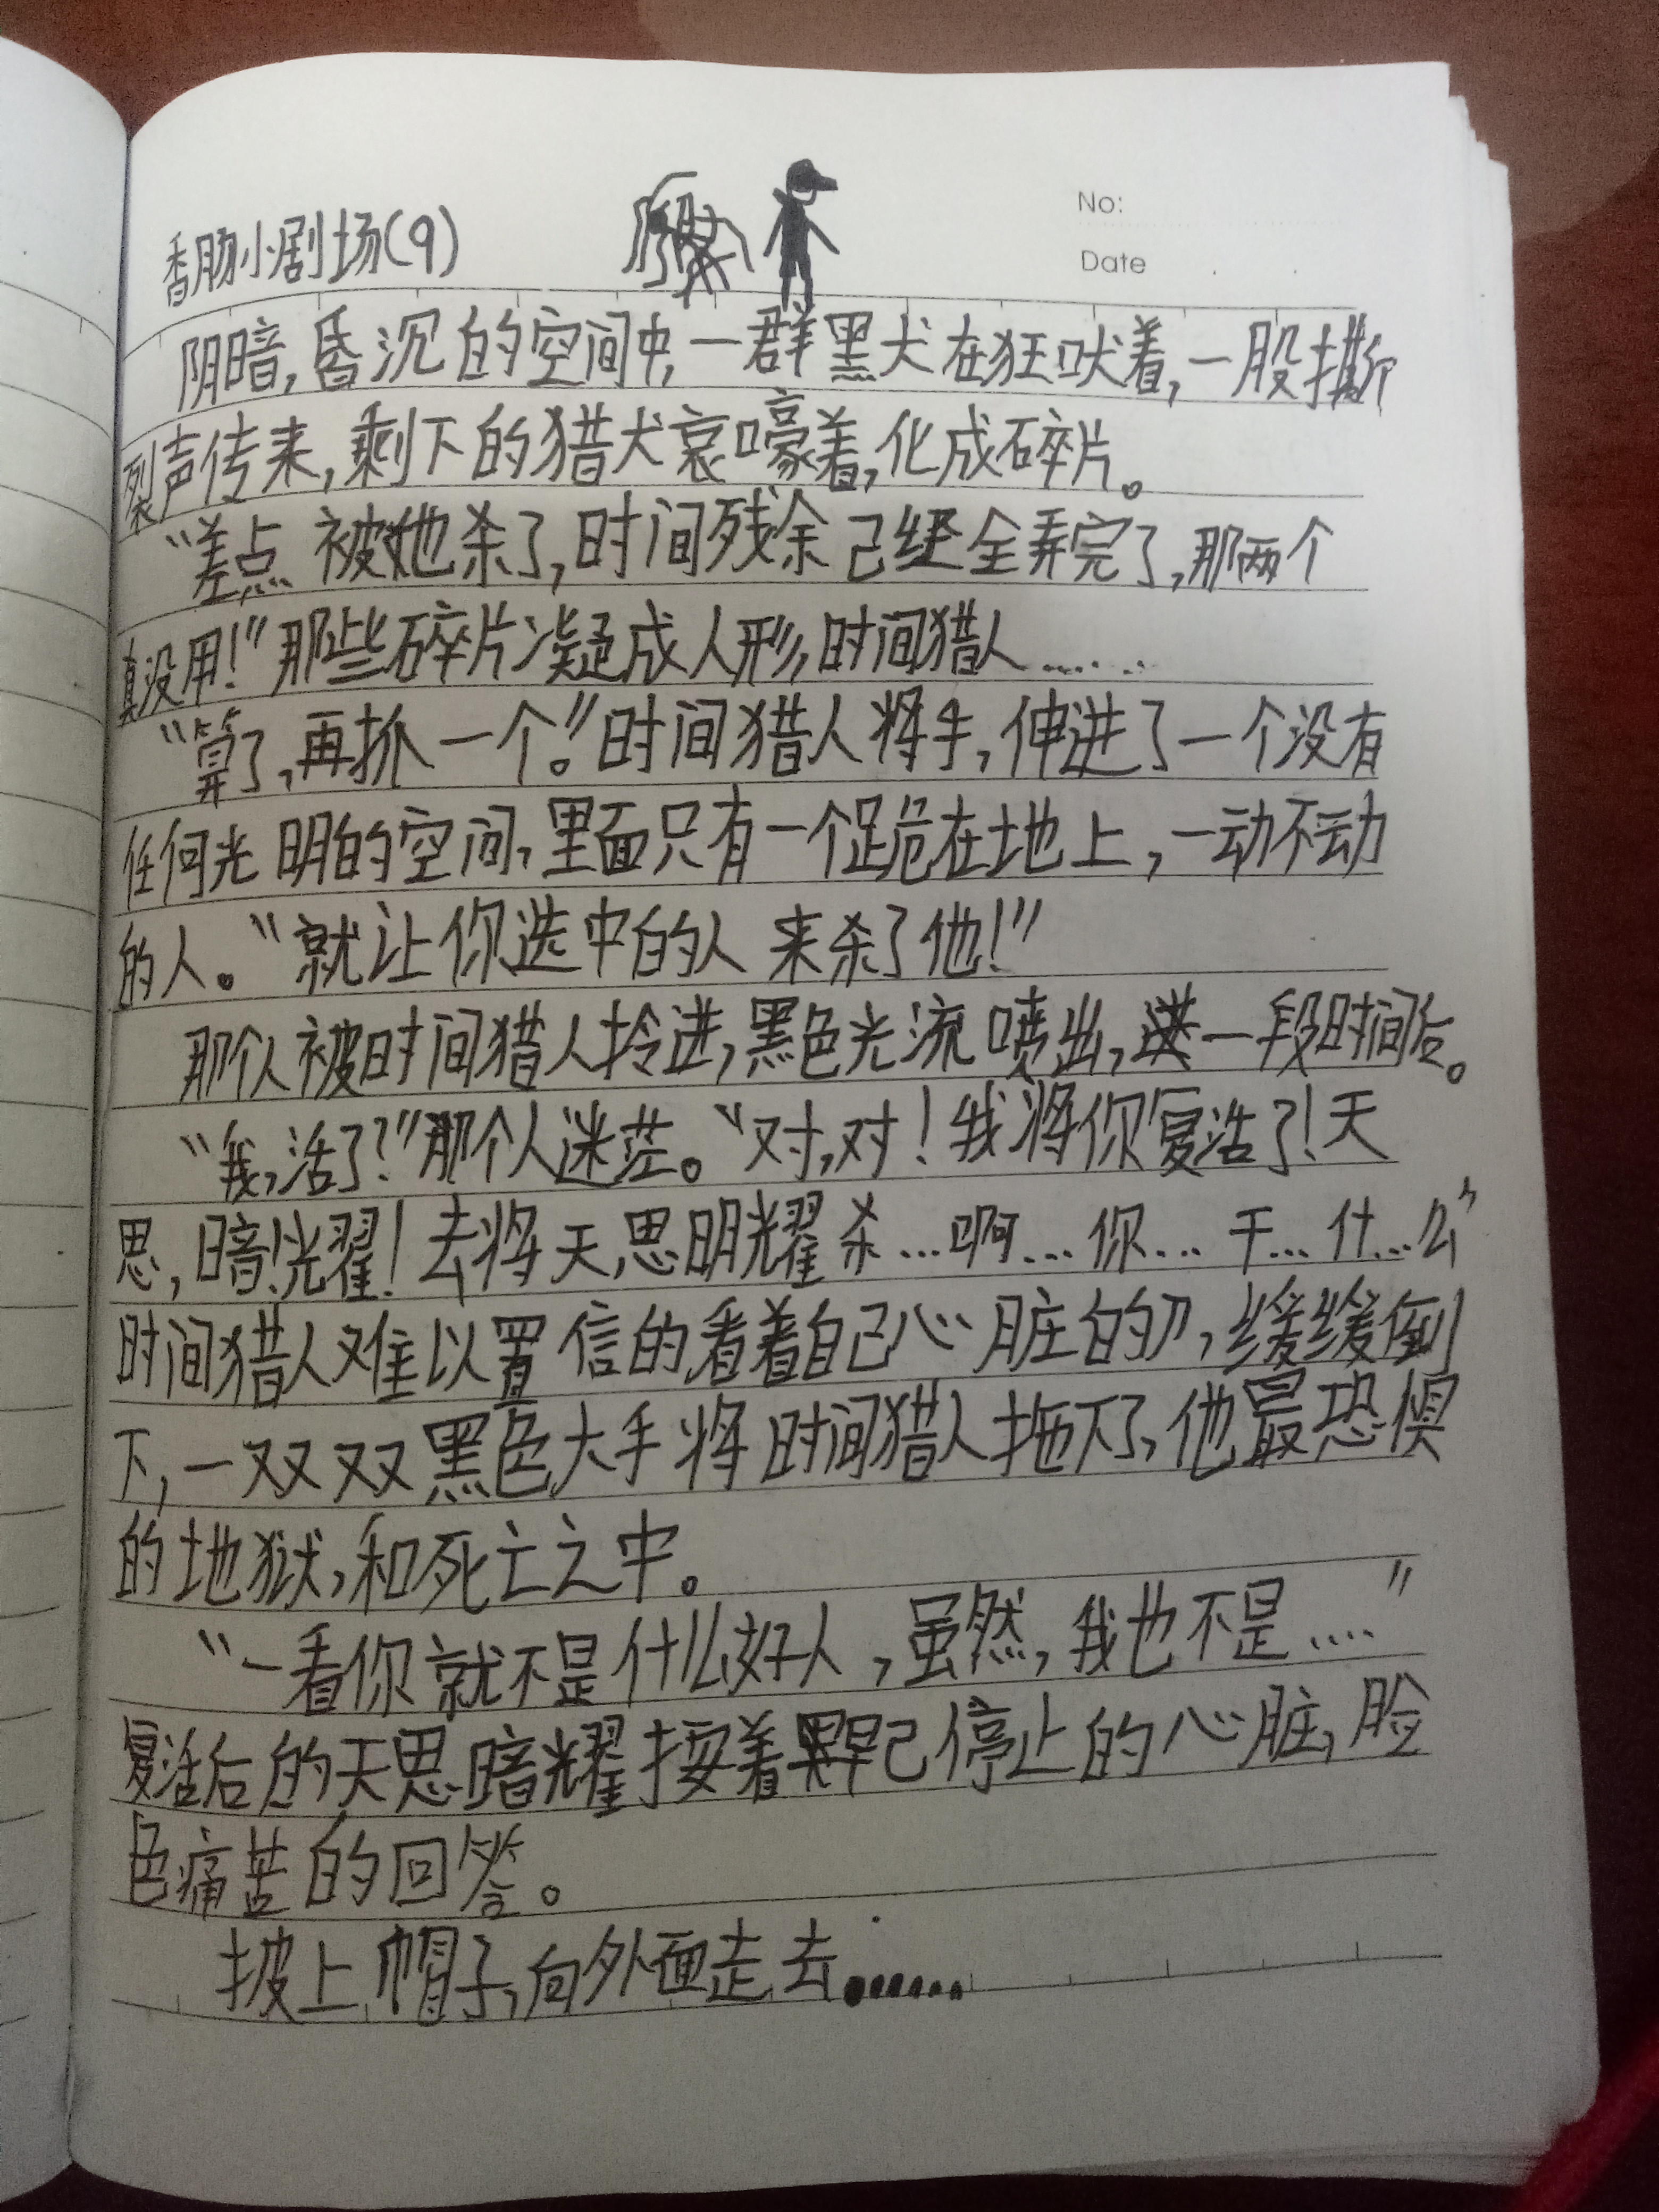 香肠小剧场(9)
No:
Date
阴暗,昏沉的空间中,一群黑犬在狂吠着,一股撕
裂声传来,剩下的猎犬哀嚎着,化成碎片。
“差点被她杀了,时间残余己经全弄完了,那两个
真没用!”那些碎片凝成人形,时间猎人......
“算了,再抓一个。”时间猎人将手,伸进了一个没有
任何光明的空间,里面只有一个跪在地上,一动不动
的人。“就让你选中的人来杀了他!”
那个人被时间猎人拎进,黑色光流喷出,一段时间后。
“我,活了?”那个人迷茫。“对,对!我将你复活了!天
思,暗光耀!去将天思明耀杀...啊...你...干...什...么”
时间猎人难以置信的看着自己心脏的刀,缓缓倒
下,一双双双黑色大手将时间猎人拖下了,他最恐惧
的地狱,和死亡之中。
“一看你就不是什么好人,虽然,我也不是....”
复活后的天思暗耀按着早己停止的心脏,脸
色痛苦的回答。
披上帽子,向外面走去.......